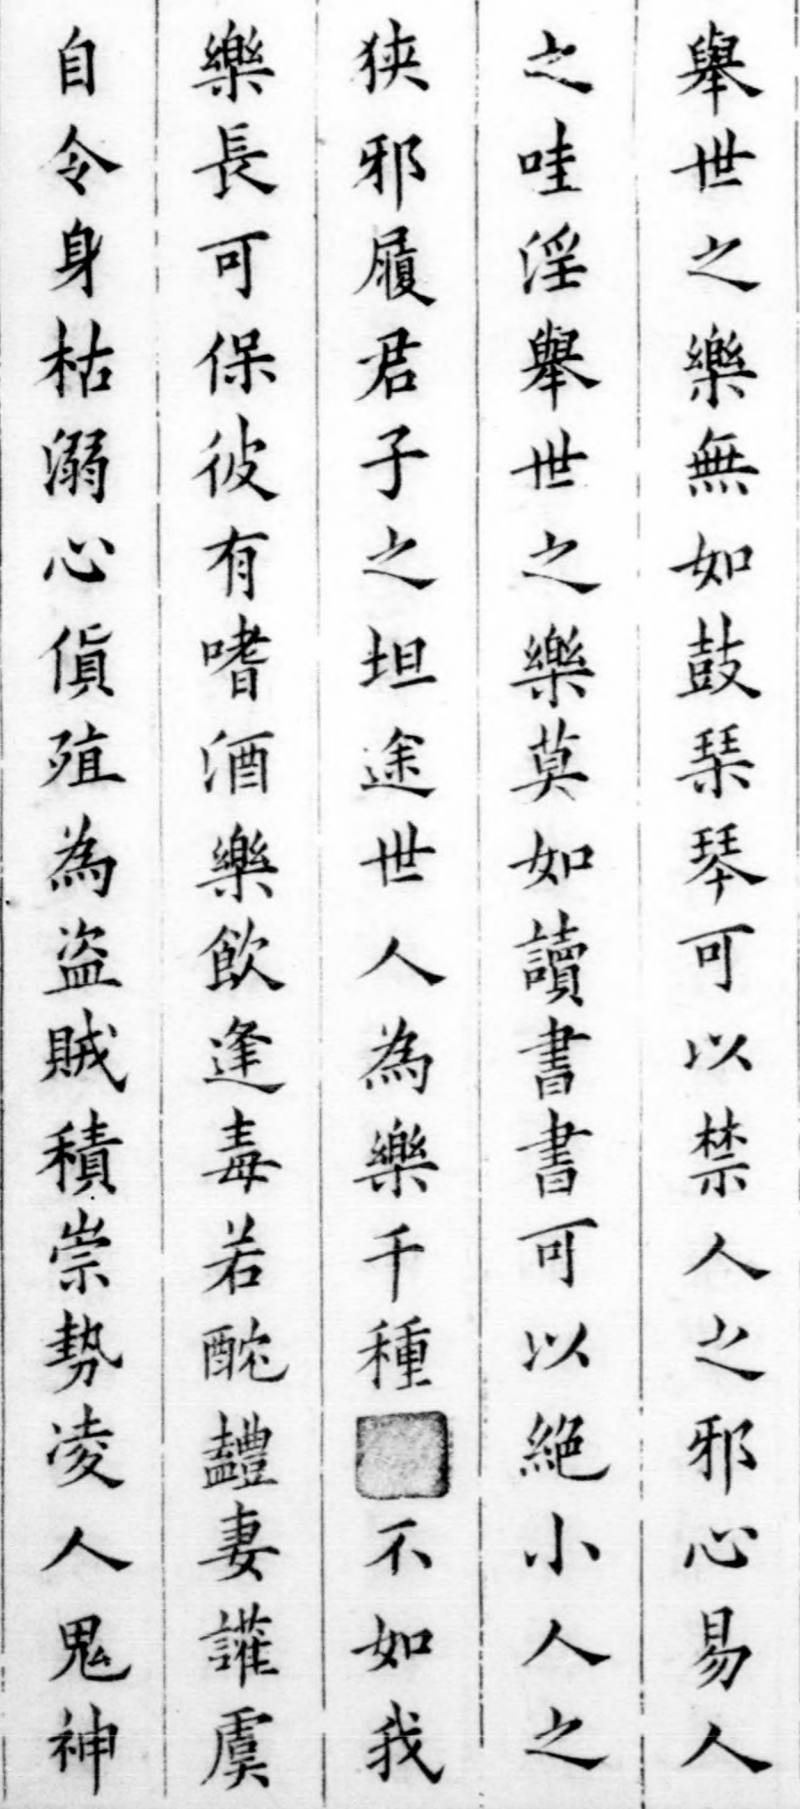 舉世之樂無如鼓琹琴可以禁人之邪心易人
之哇淫舉世之樂莫如讀書書可以絕小人之
狹邪履君子之坦途世人為樂千種不如我
樂長可保彼有嗜酒樂飲逢毒若酖妻讙虞
自令身枯溺心貨殖為盜賊積崇勢凌人鬼神